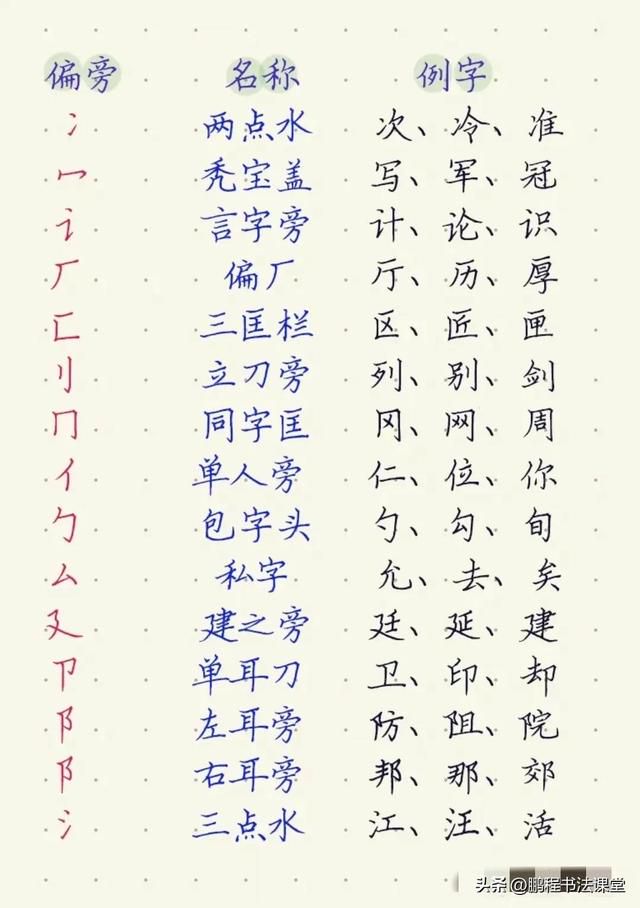 偏旁 名称 例字
冫 两点水 次、冷、准
冖 秃宝盖 写、军、冠
讠 言字旁 计、论、识
厂 偏厂 厅、历、厚
匚 三匡栏 区、匠、匣
刂 立刀旁 列、别、剑
冂 同字匡 冈、网、周
亻 单人旁 仁、位、你
勹 包字头 勺、勾、旬
厶 私字 允、去、矣
廴 建之旁 廷、延、建
卩 单耳刀 卫、印、却
阝 左耳旁 防、阻、院
阝 右耳旁 邦、那、郊
氵 三点水 江、汪、活
头条@鹏程书法课堂